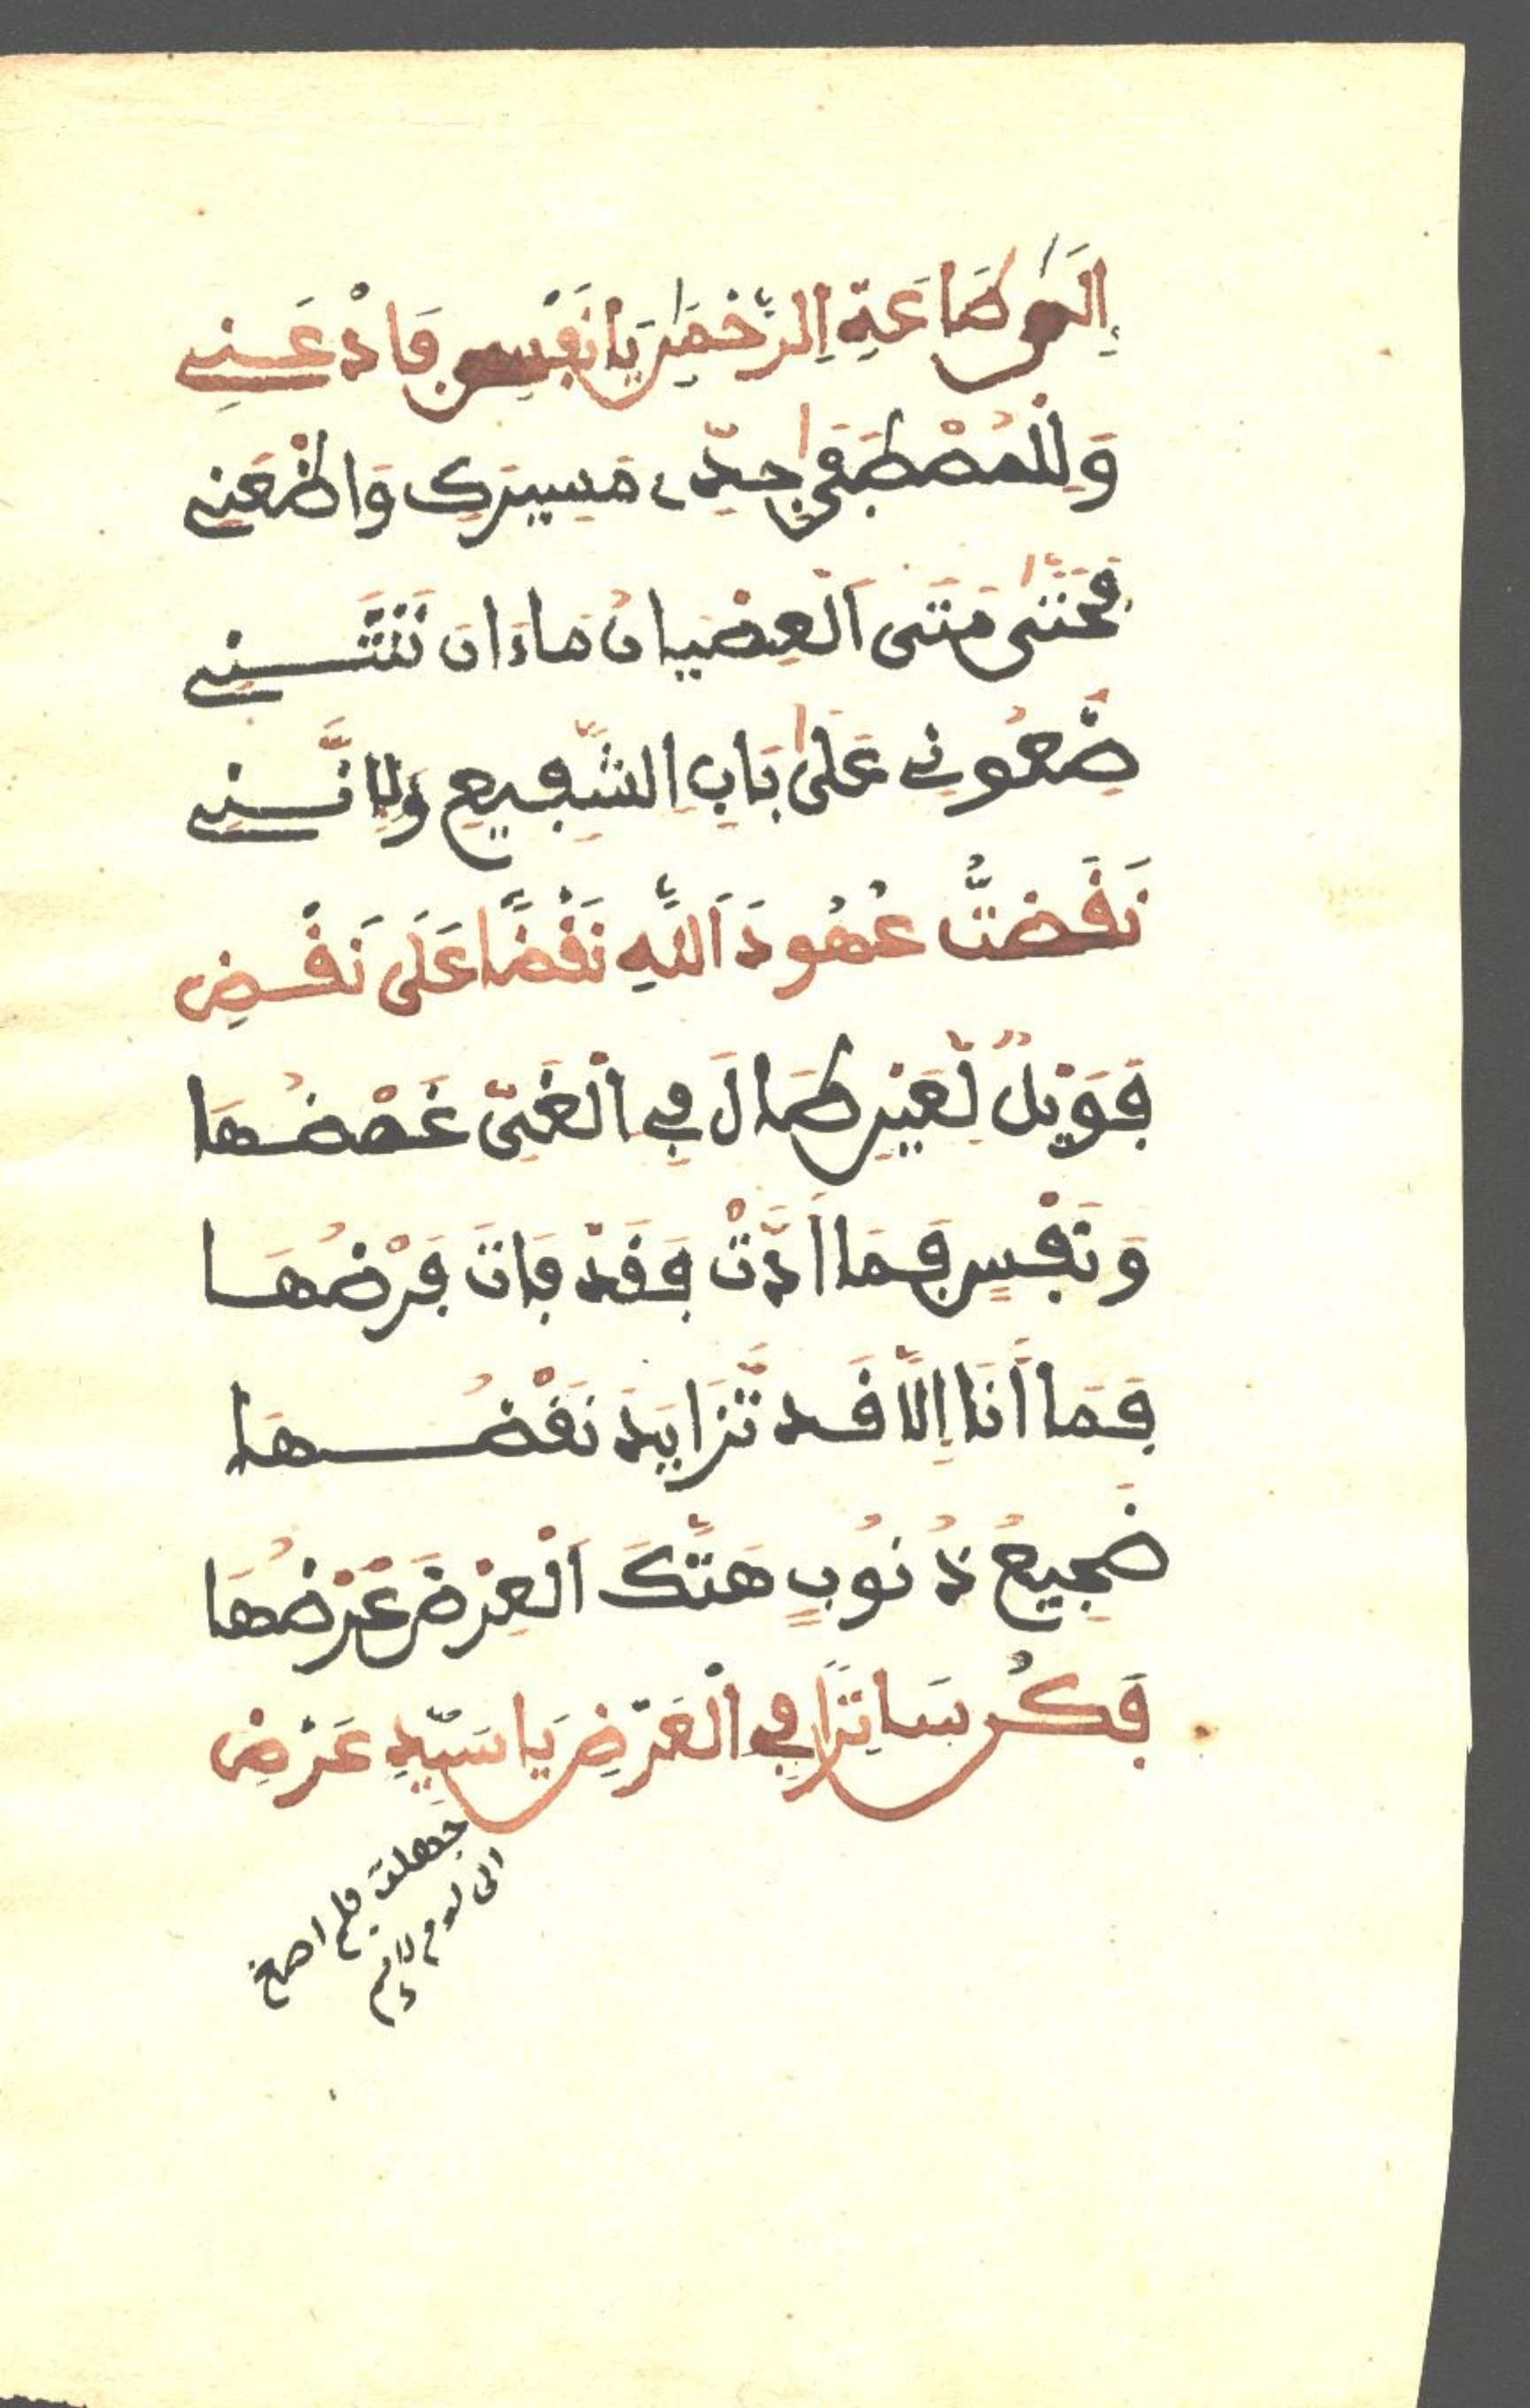 إِلَى طَاعَةِ الرَّحْمَٰنِ يَا نَفْسِ فَاذْعَنِي
وَلِلْمُصْطَفَى جِدِّي مَسِيرَكِ وَاظْعَنِي
فَحَتَّى مَتَى الْعِصْيَانُ مَاءَانَ تَنْثَنِي
ضَعُونِي عَلَى بَابِ الشَّفِيعِ وَإِنَّنِي
نَقَضْتُ عُهُودَ اللَّهِ نَقْضًا عَلَى نَقْضِ
فَوَيْلٌ لِّعَيْنٍ طَالَ فِي الْغَيِّ غَمْضُهَا
وَنَفْسٍ فَمَا أَدَّتْ فَقَدْ فَاتَ فَرْضُهَا
فَمَا أَنَا إِلَّا قَد تَّزَايَدَ نَقْضُهَا
ضَجِيعُ ذُنُوبٍ هَتَّكَ الْعِرْضَ عَرْضُهَا
فَكُن سَاتِرًا فِي الْعَرْضِ يَا سَيِّدِ عَرْضِ
جهلت فلم اصغ
الى لوم لائم